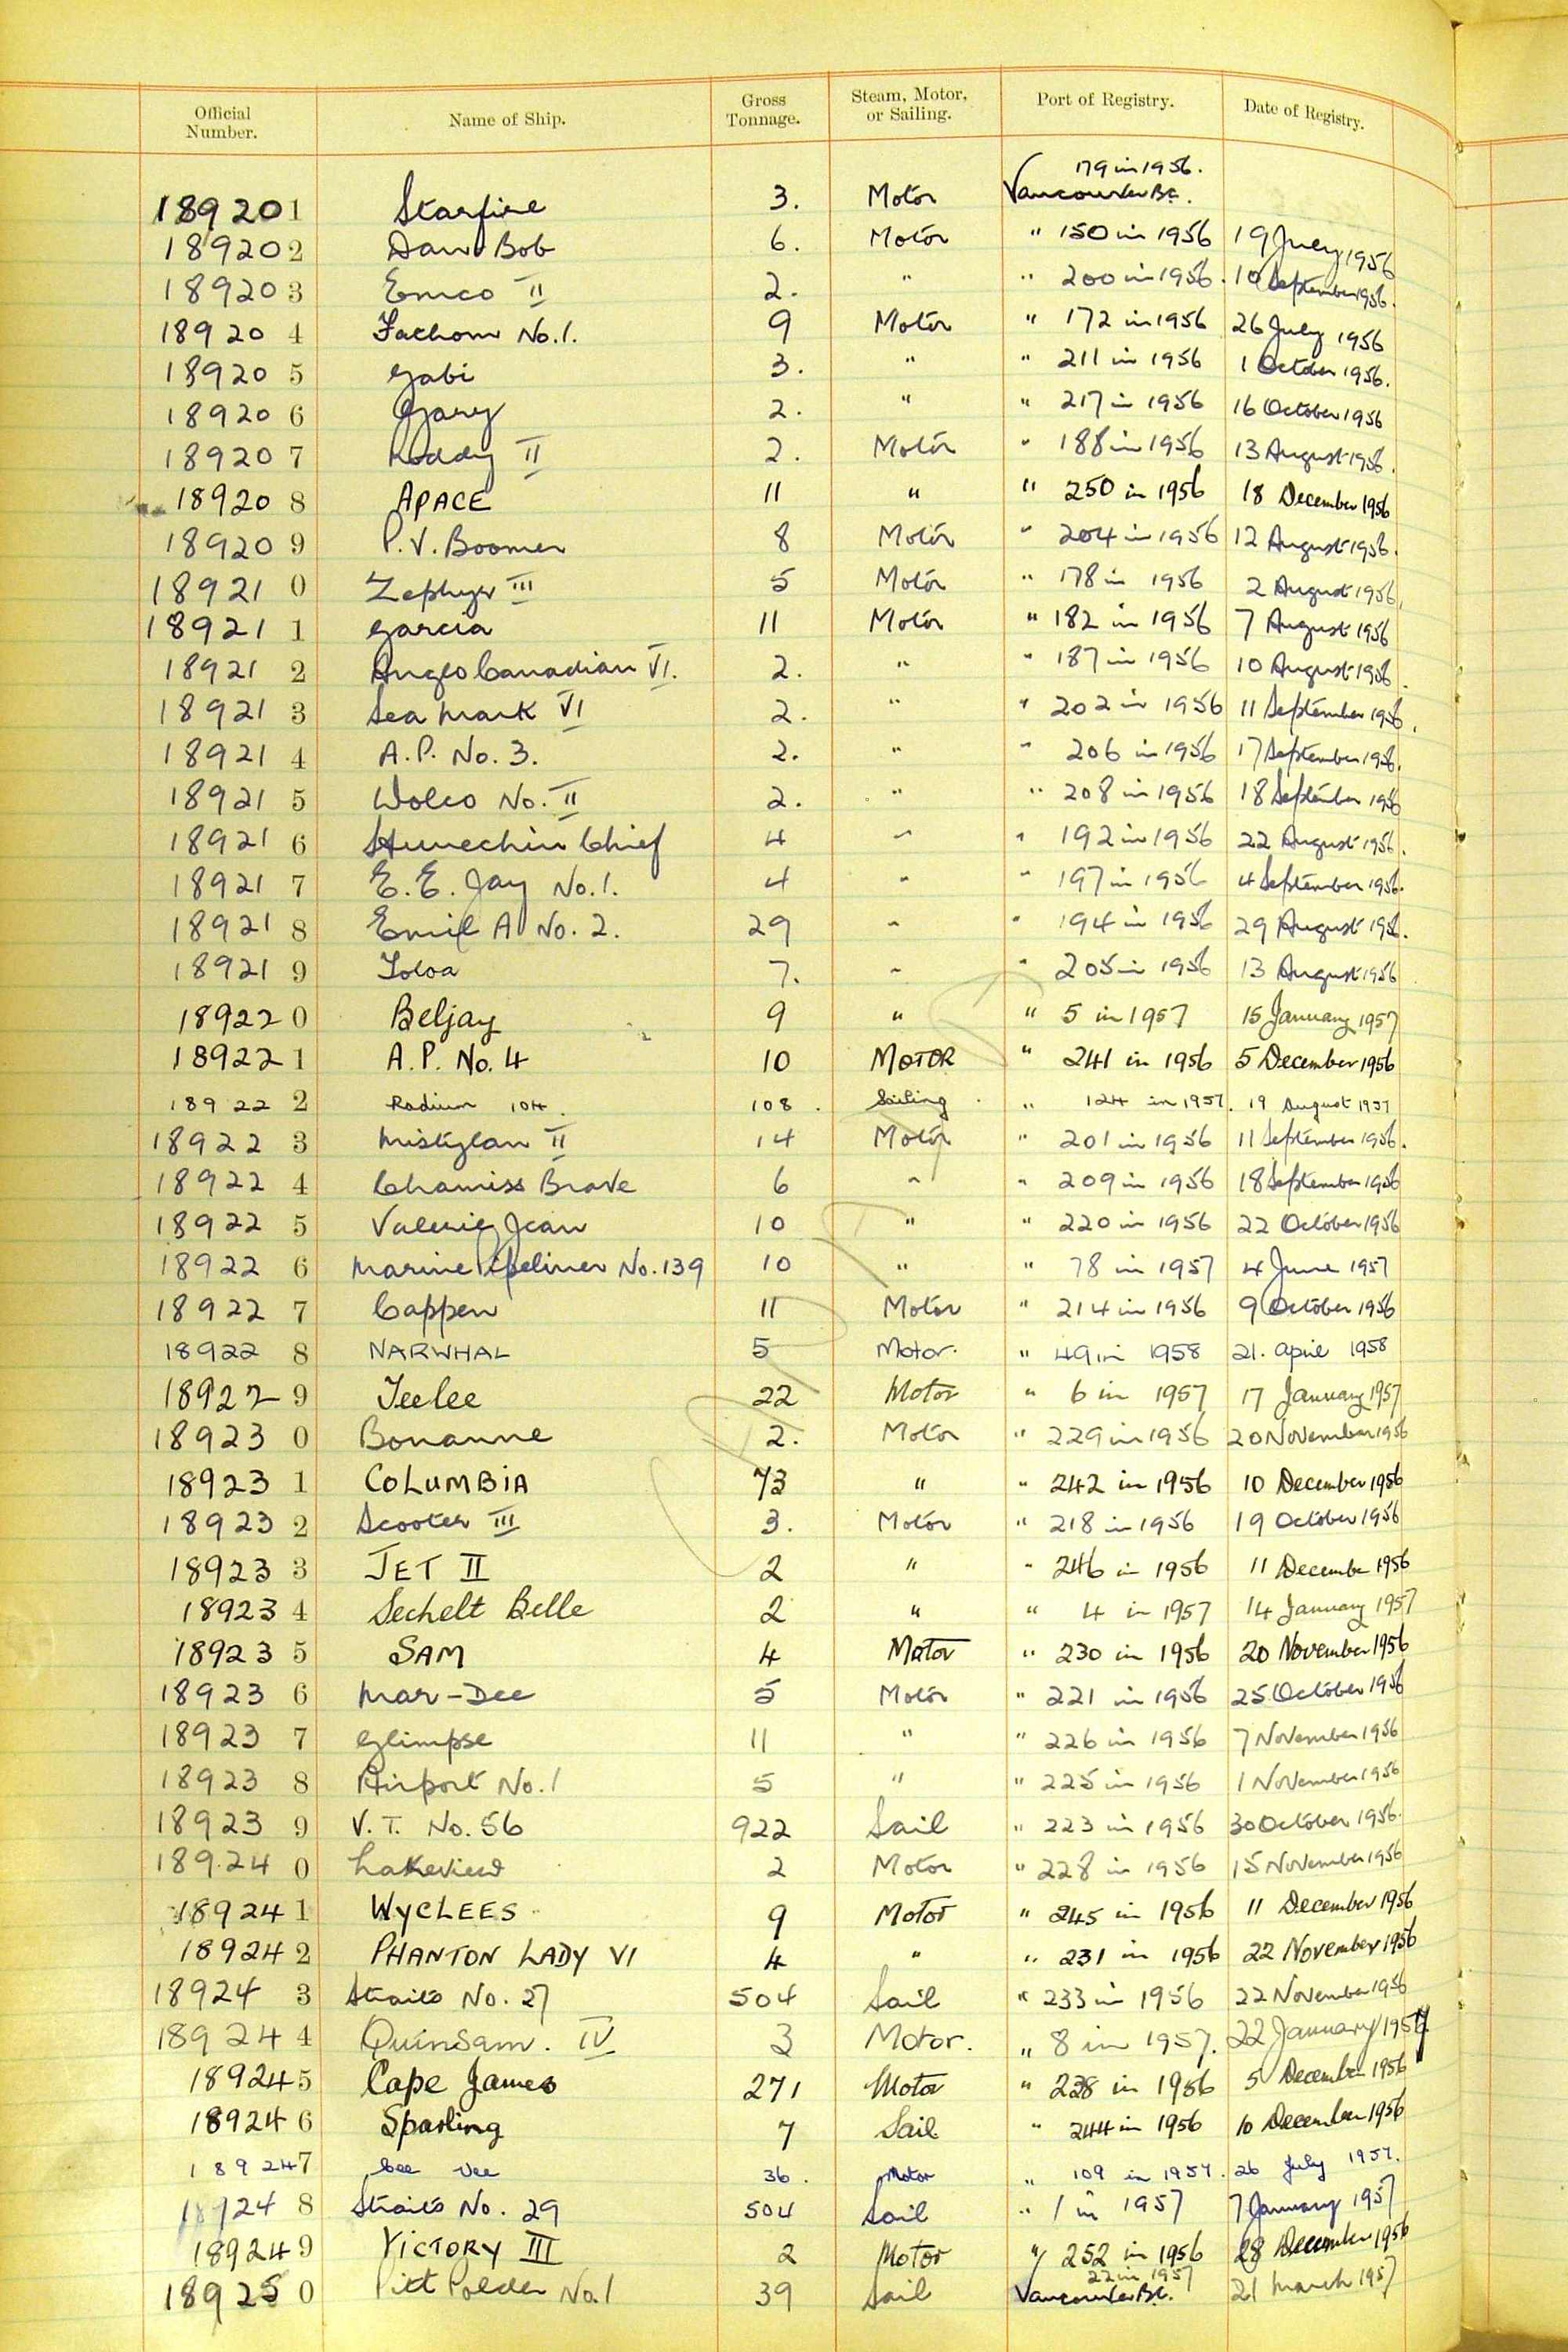 Official Number. Name of Ship. Gross Tonnage. Steam, Motor, or Sailing. Port of Registry. Date of Registry.
179 in 1956.
189201 Starfire 3. Motor Vancouver B.C.
189202 Dawn Bob 6. Motor " 150 in 1956 19 July 1956
189203 Emco II 2. " " 200 in 1956. 10 September 1956.
189204 Fathom No. 1. 9 Motor " 172 in 1956 26 July 1956
189205 Gabi 3. " " 211 in 1956 1 October 1956.
189206 Gary 2. " " 217 in 1956 16 October 1956
189207 Koddy II 2. Motor " 188 in 1956 13 August 1956.
189208 APACE 11 " " 250 in 1956 18 December 1956
189209 P.V. Boomer 8 Motor " 204 in 1956 12 August 1956.
189210 Zephyr III 5 Motor " 178 in 1956 2 August 1956.
189211 Garcia 11 Motor " 182 in 1956 7 August 1956
189212 Anglo Canadian VI. 2. " " 187 in 1956 10 August 1956.
189213 Sea Mark VI 2. " " 202 in 1956 11 September 1956.
189214 A.P. No. 3. 2. " " 206 in 1956 17 September 1956.
189215 Wolco No. II 2. " " 208 in 1956 18 September 1956
189216 Chief 4 " " 192 in 1956 22 August 1956.
189217 E.E. Jay No. 1. 4 " " 197 in 1956 4 September 1956.
189218 Emil A No. 2. 29 " " 194 in 1956 29 August 1956.
189219 Toloa 7. " " 205 in 1956 13 August 1956
189220 Beljay 9 " " 5 in 1957 15 January 1957
189221 A.P. No. 4 10 MOTOR " 241 in 1956 5 December 1956
189222 Radium 104. 108. Sailing. " 124 in 1957. 19 August 1957
189223 Mistylan II 14 Motor " 201 in 1956 11 September 1956.
189224 Chamiss Brave 6 " " 209 in 1956 18 September 1956
189225 Valerie Jean 10 " " 220 in 1956 22 October 1956
189226 Marine Pipeliner No. 139 10 " " 78 in 1957 4 June 1957
189227 Cappen 11 Motor " 214 in 1956 9 October 1956
189228 NARWHAL 5 Motor. " 49 in 1958 21. April 1958
189229 Teelee 22 Motor " 6 in 1957 17 January 1957
189230 Bonanne 2. Motor " 229 in 1956 20 November 1956
189231 COLUMBIA 73 " " 242 in 1956 10 December 1956
189232 Scooter III 3. Motor " 218 in 1956 19 October 1956
189233 JET II 2 " " 246 in 1956 11 Decembe 1956
189234 Sechelt Belle 2 " " 4 in 1957 14 January 1957
189235 SAM 4 Motor " 230 in 1956 20 November 1956
189236 Mar-Dee 5 Motor " 221 in 1956 25 October 1956
189237 Glimpse 11 " " 226 in 1956 7 November 1956
189238 Airport No. 1 5 " " 225 in 1956 1 November 1956
189239 V.T. No. 56 922 Sail " 223 in 1956 30 October 1956.
189240 Lakeview 2 Motor " 228 in 1956 15 November 1956
189241 WYCLEES 9 Motor " 245 in 1956 11 December 1956
189242 PHANTON LADY VI 4 " " 231 in 1956 22 November 1956
189243 Straits No. 27 504 Sail " 233 in 1956 22 November 1956
189244 Quinsam. IV 3 Motor. " 8 in 1957. 22 January 1957
189245 Cape James 271 Motor " 238 in 1956 5 December 1956
189246 Sparling 7 Sail " 244 in 1956 10 December 1956
189247 Cee Vee 36. Motor " 109 in 1957. 26 July 1957.
189248 Straits No. 29 504 Sail " 1 in 1957 7 January 1957
189249 VICTORY III 2 Motor " 252 in 1956 28 December 1956
22 in 1957
189250 Pitt Polder No. 1 39 Sail Vancouver B.C. 21 March 1957